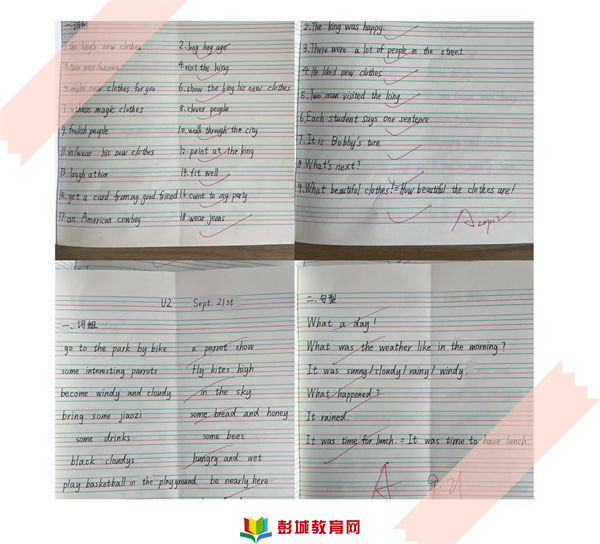 一.词组
1.the king's new clothes
2.long long ago
3.two men/women
4.visit the king
5.make new clothes for you
6.show the king his new clothes
7. these magic clothes
8.clever people
9.foolish people
10.walk through the city
11.in/wear his new clothes
12.point at the king
13.laugh at him
14.fit well
15.get a card from my good friend
16.come to my party
17.an American cowboy
18.wear jeans
2.The king was happy.
3.There were a lot of people in the street.
4.He liked new clothes
5.Two man visited the king
6.Each student says one sentence.
7.It is Bobby's turn
8.What's next?
9.What beautiful clothes!=How beautiful the clothes are!
A
U2 Sept. 21st
一、词组
go to the park by bike
a parrot show
some interesting parrots
fly kites high
become windy and cloudy
in the sky
bring some jiaozi
some bread and honey
some drinks
some bees
black cloudys
hungry and wet
play basketball in the playground
be nearly here
二、句型
What a day!
What was the weather like in the morning?
It was sunny/cloudy/rainy/windy.
What happened?
It rained.
It was time for lunch. = It was time to have lunch.
A 9.21
彭城教育网